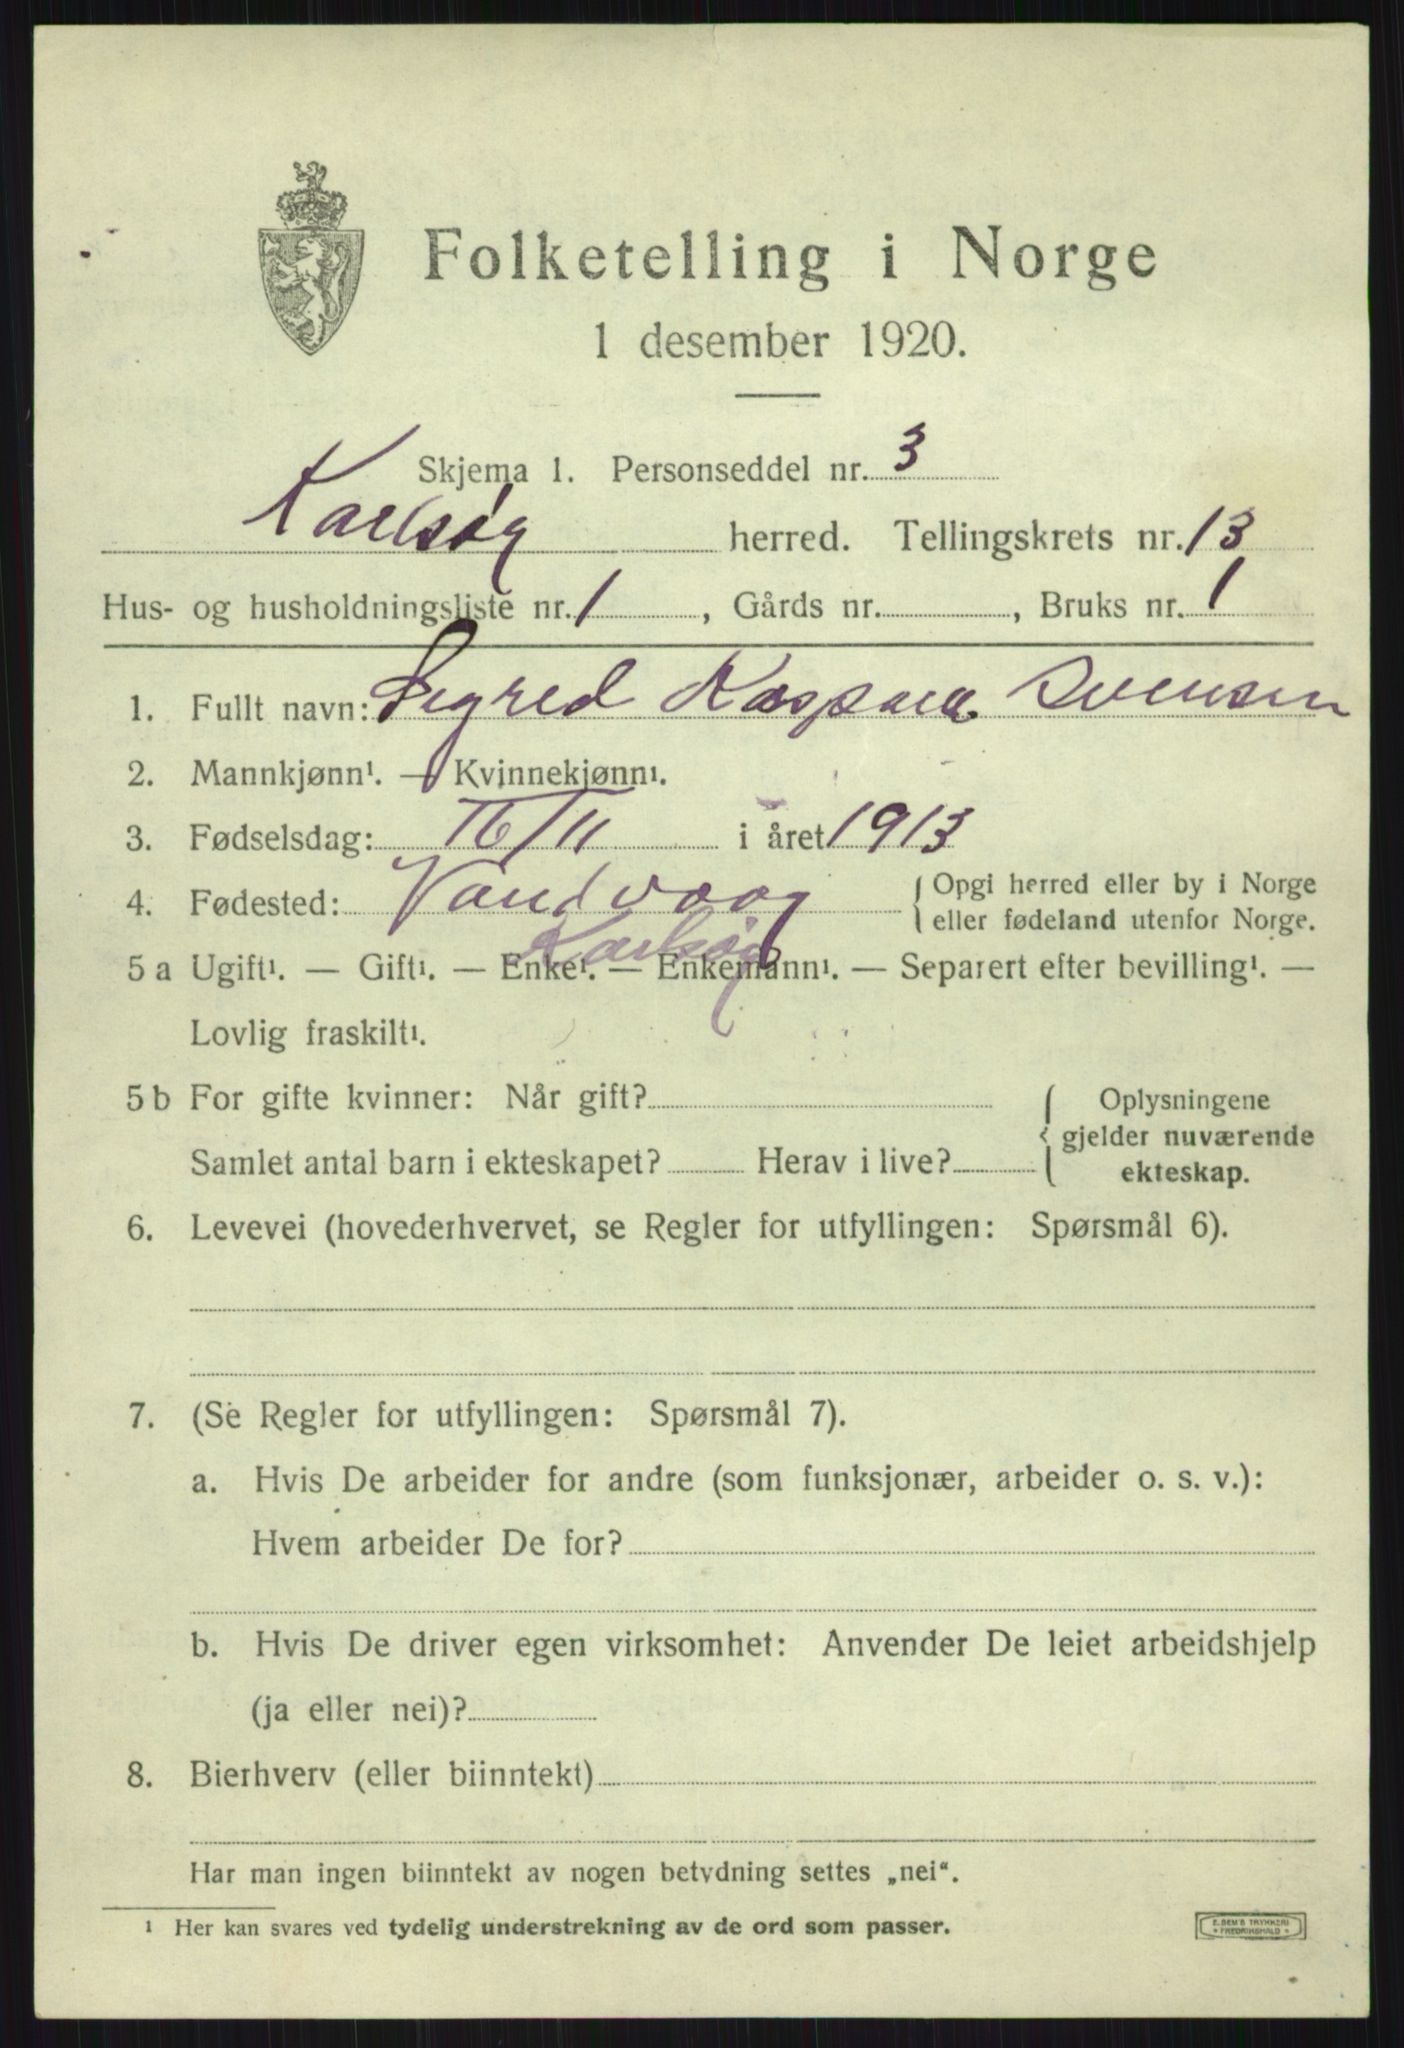 Folketelling i Norge
1 desember 1920.
Skjema 1. Personseddel nr. 3
Karlsøy herred. Tellingskrets nr. 13
Hus- og husholdningsliste nr. 1, Gårds nr. , Bruks nr. 1
1. Fullt navn: Segred Kaspara Svensen
2. Mannkjønn¹. — Kvinnekjønn¹.
3. Fødselsdag: 16/11 i året 1913
4. Fødested: Vandvaag { Opgi herred eller by i Norge
eller fødeland utenfor Norge.
Karlsøy
5 a Ugift¹. — Gift¹. — Enke¹. — Enkemann¹. — Separert efter bevilling¹. —
Lovlig fraskilt¹.
5 b For gifte kvinner: Når gift? { Oplysningene
gjelder nuværende
Samlet antal barn i ekteskapet? Herav i live? ekteskap.
6. Levevei (hovederhvervet, se Regler for utfyllingen: Spørsmål 6).
7. (Se Regler for utfyllingen: Spørsmål 7).
a. Hvis De arbeider for andre (som funksjonær, arbeider o. s. v.):
Hvem arbeider De for?
b. Hvis De driver egen virksomhet: Anvender De leiet arbeidshjelp
(ja eller nei)?
8. Bierhverv (eller biinntekt)
Har man ingen biinntekt av nogen betydning settes „nei“.
¹ Her kan svares ved tydelig understrekning av de ord som passer.
E. SEM'S TRYKKERI
* FREDRIKSHALD *